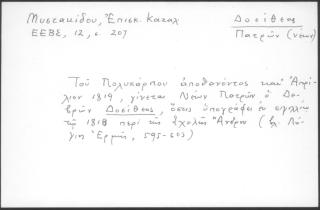 Μυστακίδου, Ἐπισκ. Κατάλ
ΕΕΒΣ, 12, σ. 207
Δοσίθεος
Πατρῶν (νέων)
Τοῦ Πολυκάρπου ἀποθανόντος κατὰ Ἀπρί-
λιον 1819, γίνεται Νέων Πατρῶν ὁ
Δοσίθεος, ὅστις ὑπογράφει ἐν
τῷ 1818 περὶ τῆς Σχολῆς Ἄνδρου (βλ. Λό-
γιον Ἑρμῆν, 595-603)